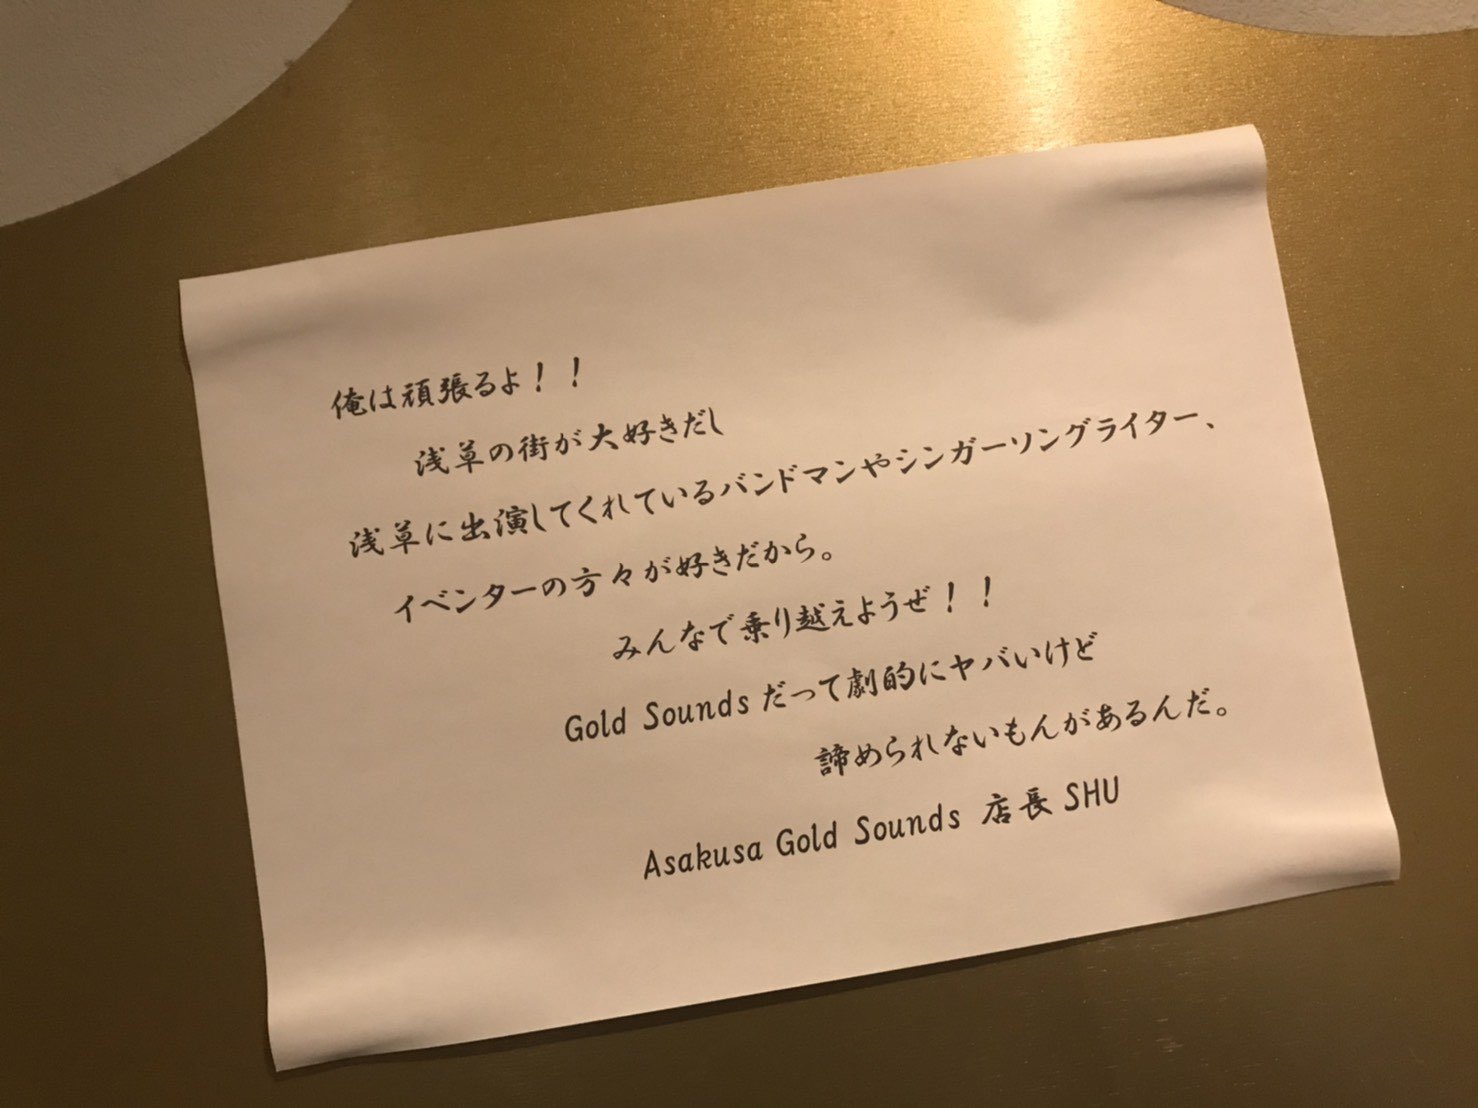 俺は頑張るよ！！
浅草の街が大好きだし
浅草に出演してくれているバンドマンやシンガーソングライター、
イベンターの方々が好きだから。
みんなで乗り越えようぜ！！
Gold Soundsだって劇的にヤバいけど
諦められないもんがあるんだ。
Asakusa Gold Sounds 店長 SHU